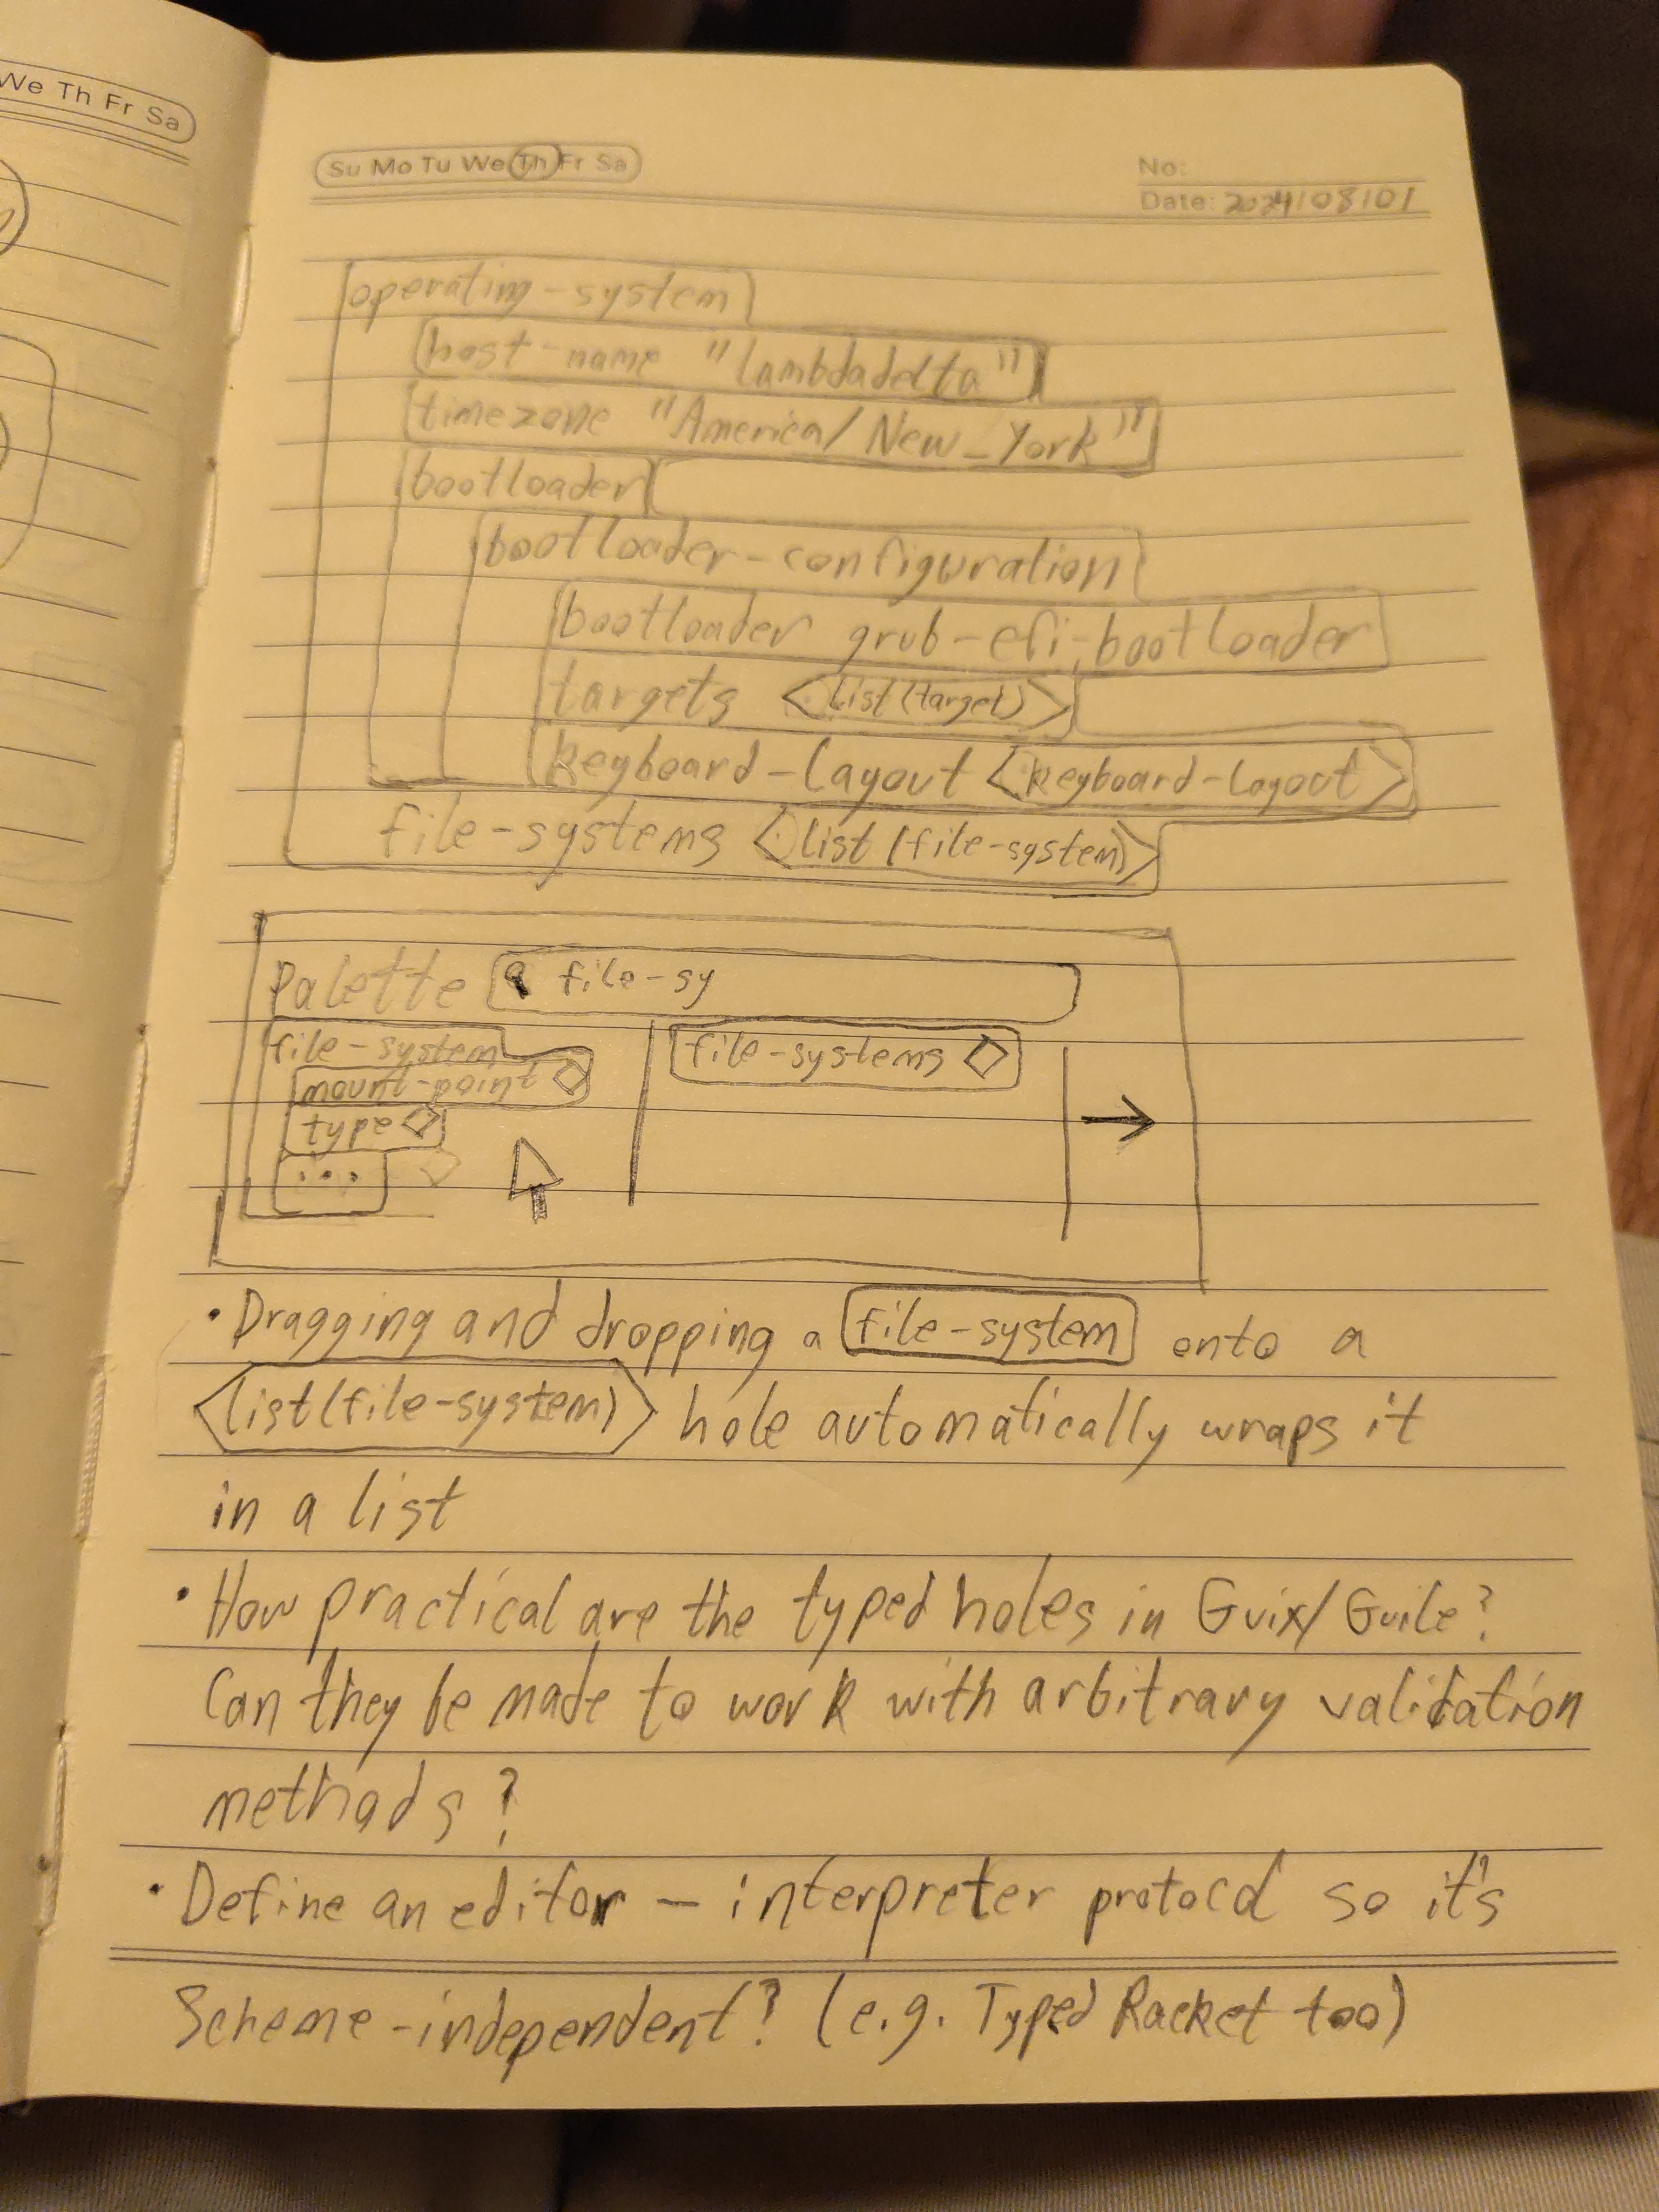 We Th Fr Sa
Su Mo Tu We Th Fr Sa
No:
Date: 2024/08/01
operating-system
host-name "lambdadelta"
timezone "America/New_York"
bootloader
bootloader-configuration
bootloader grub-efi-bootloader
targets <list(target)>
keyboard-layout <keyboard-layout>
file-systems <list(file-system)>
Palette file-sy
file-system
mount-point
type
...
file-systems
• Dragging and dropping a file-system onto a
<list(file-system)> hole automatically wraps it
in a list
• How practical are the typed holes in Guix/Guile?
Can they be made to work with arbitrary validation
methods?
• Define an editor – interpreter protocol so it's
Scheme-independent? (e.g. Typed Racket too)